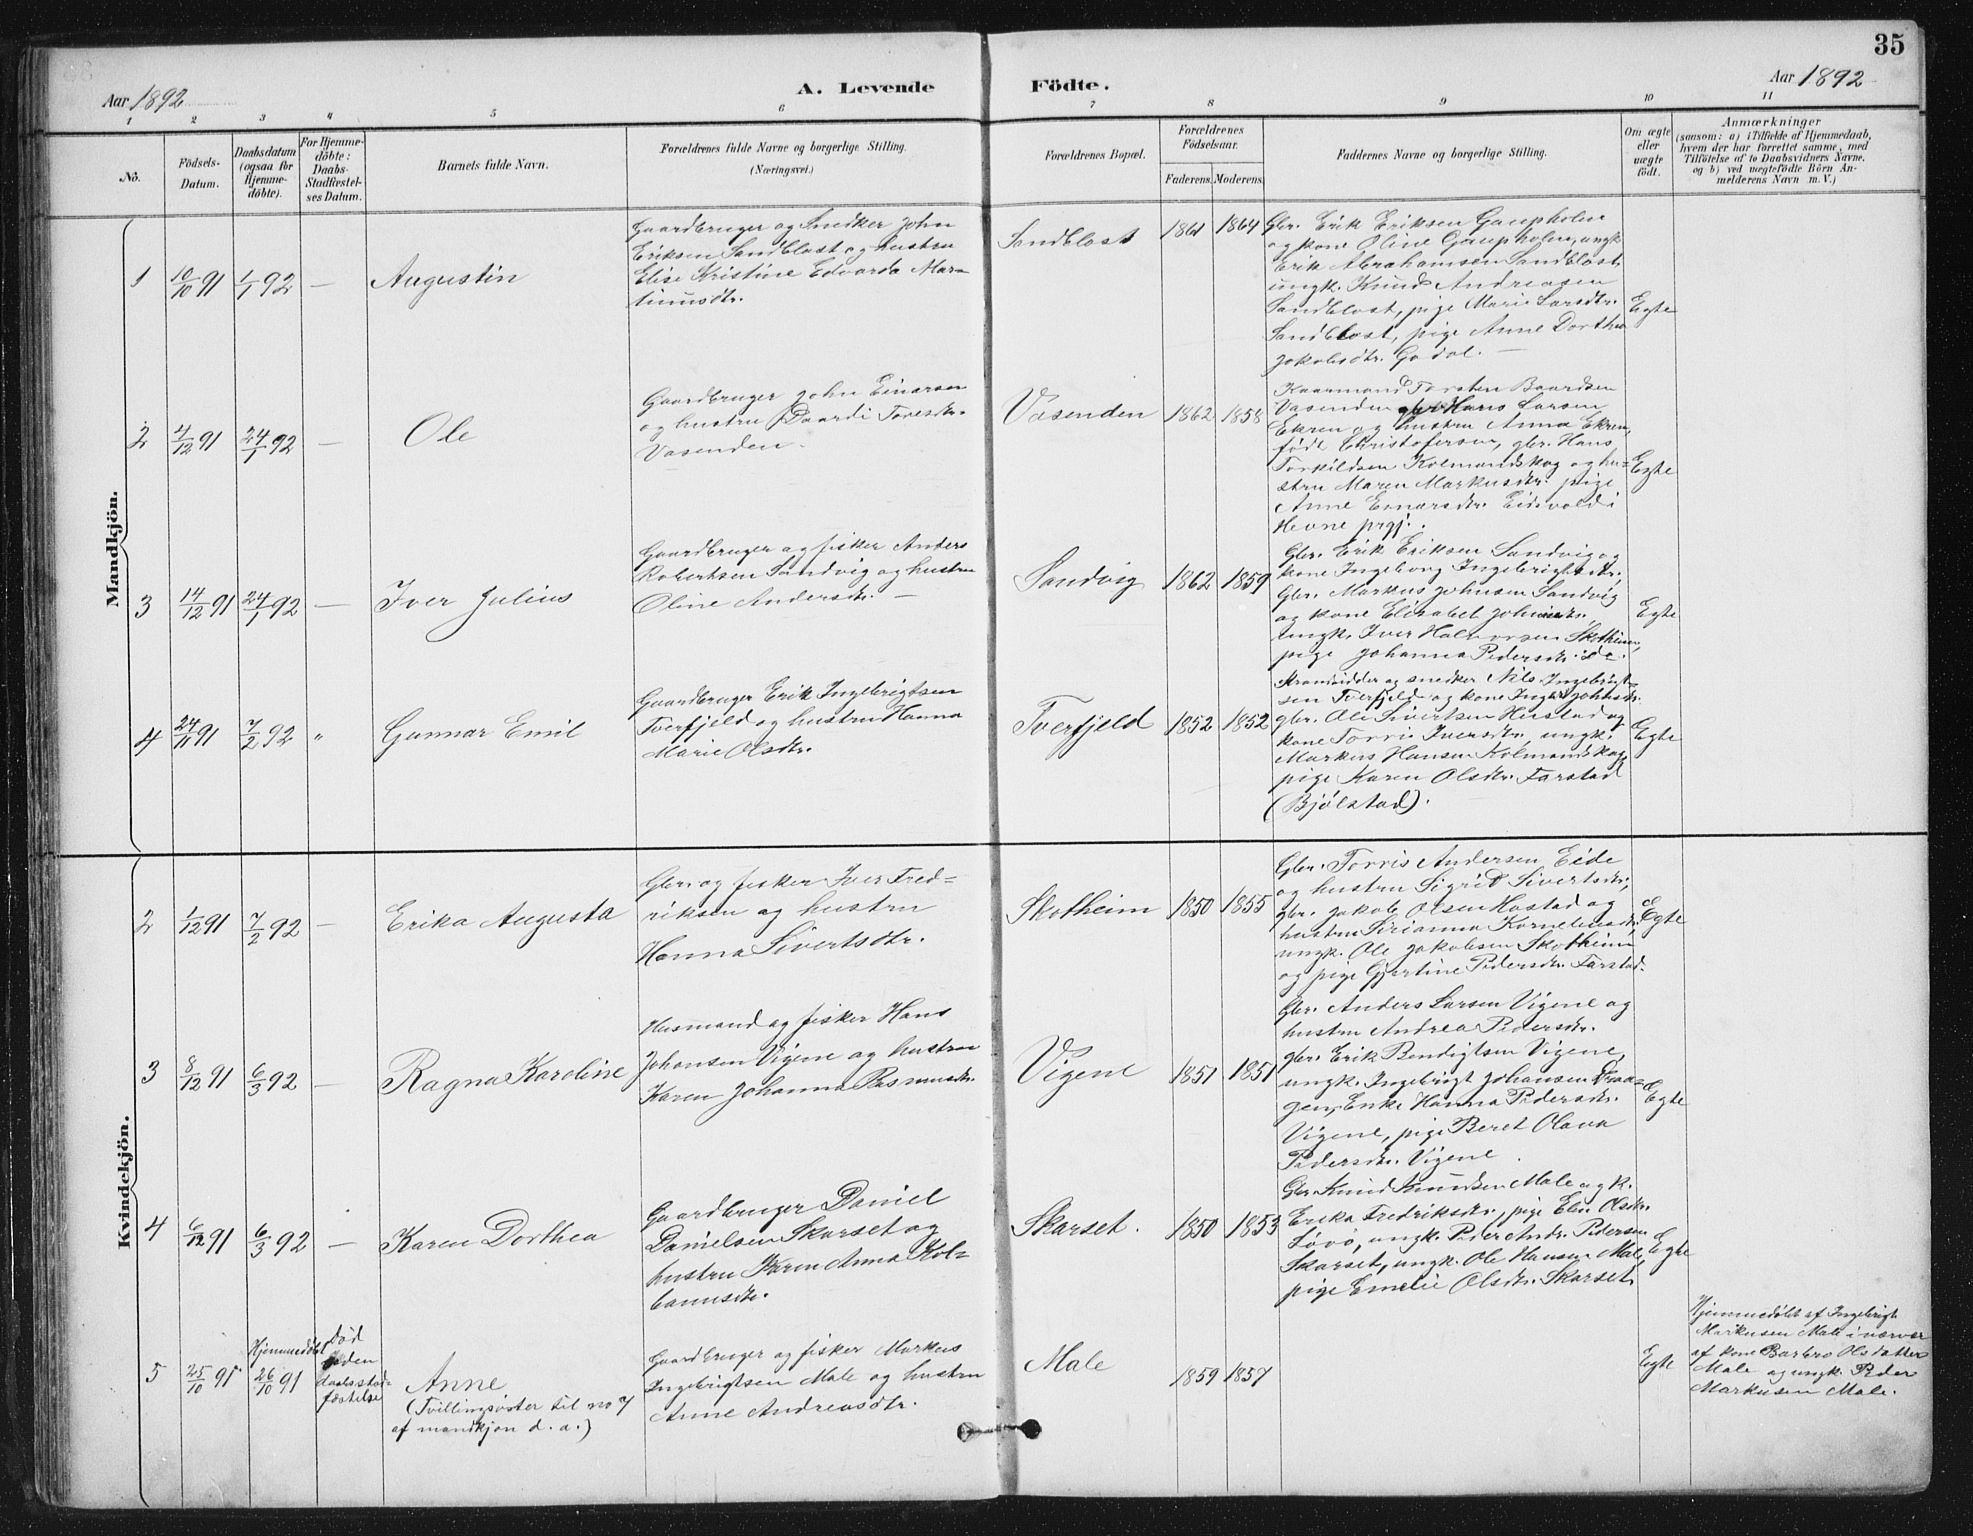 35
Aar 1892
A. Levende Födte.
Aar 1892
1 2 3 4 5 6 7 8 9 10 11
No.
Födsels-
Datum.
Daabsdatum
(ogsaa for
Hjemme-
döbte).
For Hjemme-
döbte:
Daabs-
Stadfæstel-
ses Datum.
Barnets fulde Navn.
Forældrenes fulde Navne og borgerlige Stilling.
(Næringsvei.)
Forældrenes Bopæl.
Forældrenes
Födselsaar.
Faderens. Moderens.
Faddernes Navne og borgerlige Stilling.
Om ægte
eller
uægte
födt.
Anmærkninger
(saasom: a) i Tilfælde af Hjemmedaab,
hvem der har forrettet samme, med
Tilföielse af to Daabsvidners Navne,
og b) ved uægtefödte Börn An-
melderens Navn m. V.)
Mandkjön.
1
10/10 91
1/1 92
—
Augustin
Gaardbruger og Snedker John
Eriksen Sandblost og hustru
Elise Kristine Edvarda Mar-
tinusdtr.
Sandblost
1861
1864
Gbr. Erik Eriksen Gaupholm
og kone Oline Gaupholm, ungk.
Erik Abrahamsen Sandblost,
ungk. Knud Andreasen
Sandblost, pige Marie Larsdtr.
Sandblost, pige Anne Dorthea
Jakobsdtr. Godal. —
Egte
2
4/12 91
24/1 92
—
Ole
Gaardbruger John Einarsen
og hustru Baardi Toresdtr.
Vasenden.
Vasenden
1862
1858
Kaarmand Torsten Baardsen
Vasenden, gbr. Hans Larsen
Ekren og hustru Anna Ekren,
født Christofersen, gbr. Hans
Torkildsen Kolmandskog og hu-
stru Maren Markusdtr. pige
Anne Einarsdtr. Eidsvold i
Hevne prgj.
Egte
3
14/12 91
24/1 92
—
Iver Julius
Gaardbruger og fisker Anders
Robertsen Sandvig og hustru
Oline Andersdtr. —
Sandvig
1862
1859
Gbr. Erik Eriksen Sandvig og
kone Ingeborg Ingebrigtsdtr.,
Gbr. Markus Johnsen Sandvig
og kone Elisabet Johnsdtr.,
ungk. Iver Halvorsen Skotheim,
pige Johanna Pedersdtr. sa.
Egte
4
24/11 91
7/2 92
"
Gunnar Emil
Gaardbruger Erik Ingebrigtsen
Tverfjeld og hustru Hanna
Marie Olsdtr.
Tverfjeld
1852
1852
Strandsidder og snedker Nils Ingebrigt-
sen Tverfjeld og kone Ingebr. Johnsdtr.
gbr. Ole Sivertsen Hustad og
kone Torris Iversdtr., ungk.
Markus Hansen Kolmandskog,
pige Karen Olsdtr. Farstad
(Bjølstad).
Egte
Kvindekjön.
2
1/12 91
7/2 92
—
Erika Augusta
Gbr. og fisker Iver Fred-
riksen og hustru
Hanna Sivertsdtr.
Skotheim
1850
1855
Gbr. Torris Andersen Eide
og hustru Sigrid Sivertsdtr.,
gbr. Jakob Olsen Hostad og
hustru Sirianna Korneliusdtr.
ungk. Ole Jakobsen Skotheim
og pige Gjertine Pedersdtr. Farstad.
Egte
3
8/12 91
6/3 92
—
Ragna Karoline
Husmand og fisker Hans
Johansen Vigene og hustru
Karen Johanna Rasmusdtr.
Vigene
1851
1851
Gbr. Anders Larsen Vigene og
hustru Andrea Pedersdtr.
gbr. Erik Bendigtsen Vigene,
ungk. Ingebrigt Johansen Draa-
gen, Enke Hanna Pedersdtr.
Vigene, pige Beret Olava
Pedersdtr. Vigene.
Egte
4
6/12 91
6/3 92
—
Karen Dorthea
Gaardbruger Daniel
Danielsen Skarset og
hustru Karen Anna Kol-
banusdtr.
Skarset.
1850
1853
Gbr. Knud Knudsen Male og k.
Erika Fredriksdtr., pige Elie Olsdtr.
Løvø, ungk. Peder Andr. Pedersen
Skarset, ungk. Ole Hansen Male,
pige Emelie Olsdtr. Skarset
Egte
5
25/10 91
Hjemmedøbt
26/10 91
død
uden
daabsstad-
fæstelse
Anne
(Tvillingsøster til no 7
af mandkjøn d. a.)
Gaardbruger og fisker Markus
Ingebrigtsen Male og hustru
Anne Andreasdtr.
Male
1859
1857
Egte
Hjemmedøbt af Ingebrigt
Markusen Male i nærvær
af kone Barbro Olsdatter
Male og ungk. Peder
Markusen Male.